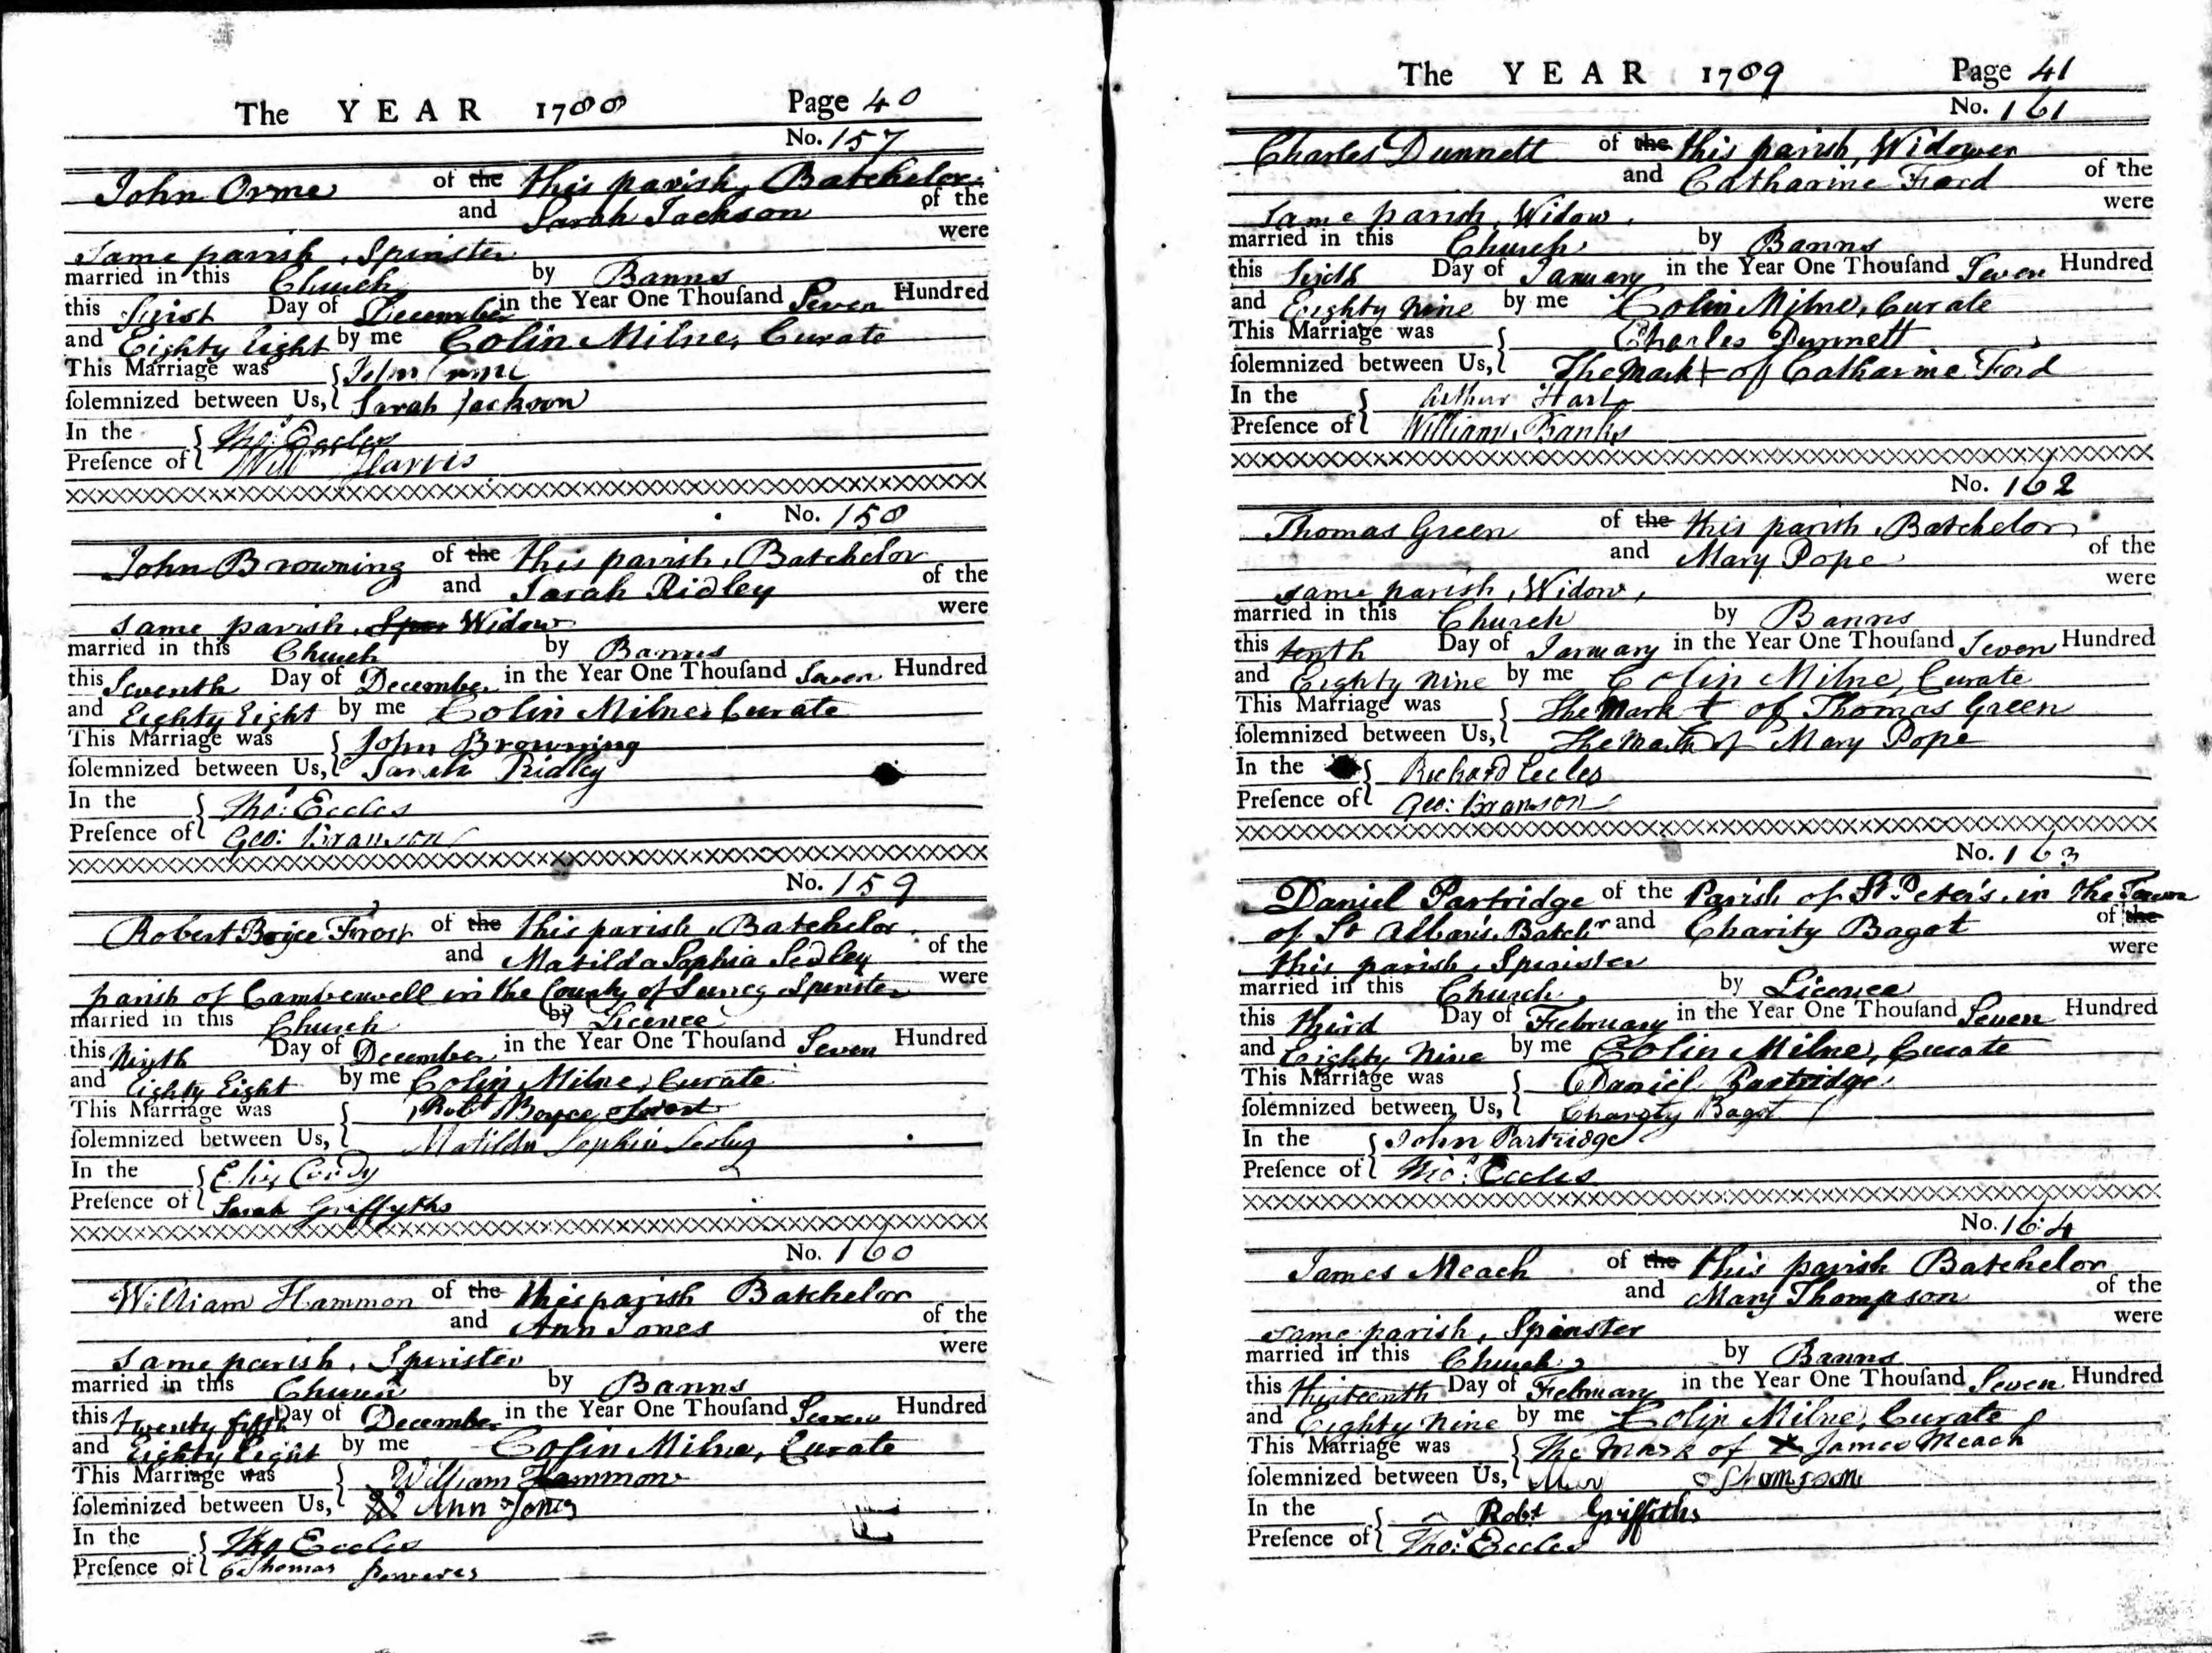 The YEAR 1788 Page 40
No. 157
John Orme of the this parish, Batchelor
and Sarah Jackson of the
same parish, Spinster were
married in this Church by Banns
this first Day of December in the Year One Thouſand Seven Hundred
and Eighty Eight by me Colin Milne, Curate
This Marriage was John Orme
ſolemnized between Us, Sarah Jackson
In the Tho.s Eccles
Preſence of Will Harris
No. 158
John Browning of the this parish, Batchelor
and Sarah Ridley of the
same parish, Spin Widow were
married in this Church by Banns
this Seventh Day of December in the Year One Thouſand Seven Hundred
and Eighty Eight by me Colin Milne, Curate
This Marriage was John Browning
ſolemnized between Us, Sarah Ridley
In the Tho.s Eccles
Preſence of Geo: Branson
No. 159
Robert Boyce Frost of the this parish, Batchelor
and Matilda Sophia Sedley of the
parish of Camberwell in the County of Surrey Spinster were
married in this Church by Licence
this Ninth Day of December in the Year One Thouſand Seven Hundred
and Eighty Eight by me Colin Milne, Curate
This Marriage was Robt Boyce Frost
ſolemnized between Us, Matilda Sophia Sedley
In the Cordy
Preſence of Sarah Griffyths
No. 160
William Hammon of the this parish Batchelor
and Ann Jones of the
same parish, Spinster were
married in this Church by Banns
this twenty fifth Day of December in the Year One Thouſand Seven Hundred
and Eighty Eight by me Colin Milne, Curate
This Marriage was William Hammon
ſolemnized between Us, Ann Jones
In the Tho Eccles
Preſence of Thomas
The YEAR 1789 Page 41
No. 161
Charles Dunnett of the this parish, Widower
and Catharine Ford of the
same parish, Widow, were
married in this Church by Banns
this Sixth Day of January in the Year One Thouſand Seven Hundred
and Eighty Nine by me Colin Milne, Curate
This Marriage was Charles Dunnett
ſolemnized between Us, The Mark + of Catharine Ford
In the Arthur Hart
Preſence of William Banks
No. 162
Thomas Green of the this parish, Batchelor
and Mary Pope of the
same parish, Widow, were
married in this Church by Banns
this tenth Day of January in the Year One Thouſand Seven Hundred
and Eighty Nine by me Colin Milne, Curate
This Marriage was The Mark + of Thomas Green
ſolemnized between Us, The Mark of Mary Pope
In the Richard Eccles
Preſence of Geo: Branson
No. 163
Daniel Partridge of the Parish of St. Peter's, in the Town
of St Alban's, Batchr and Charity Bagot of the
this parish, Spinster were
married in this Church by Licence
this third Day of February in the Year One Thouſand Seven Hundred
and Eighty Nine by me Colin Milne, Curate
This Marriage was Daniel Partridge
ſolemnized between Us, Charity Bagot
In the John Partridge
Preſence of Tho.s Eccles
No. 164
James Meach of the this parish Batchelor
and Mary Thompson of the
same parish, Spinster were
married in this Church by Banns
this thirteenth Day of February in the Year One Thouſand Seven Hundred
and Eighty Nine by me Colin Milne, Curate
This Marriage was The Mark of X James Meach
ſolemnized between Us, Thomson
In the Robt Griffiths
Preſence of Tho.s Eccles